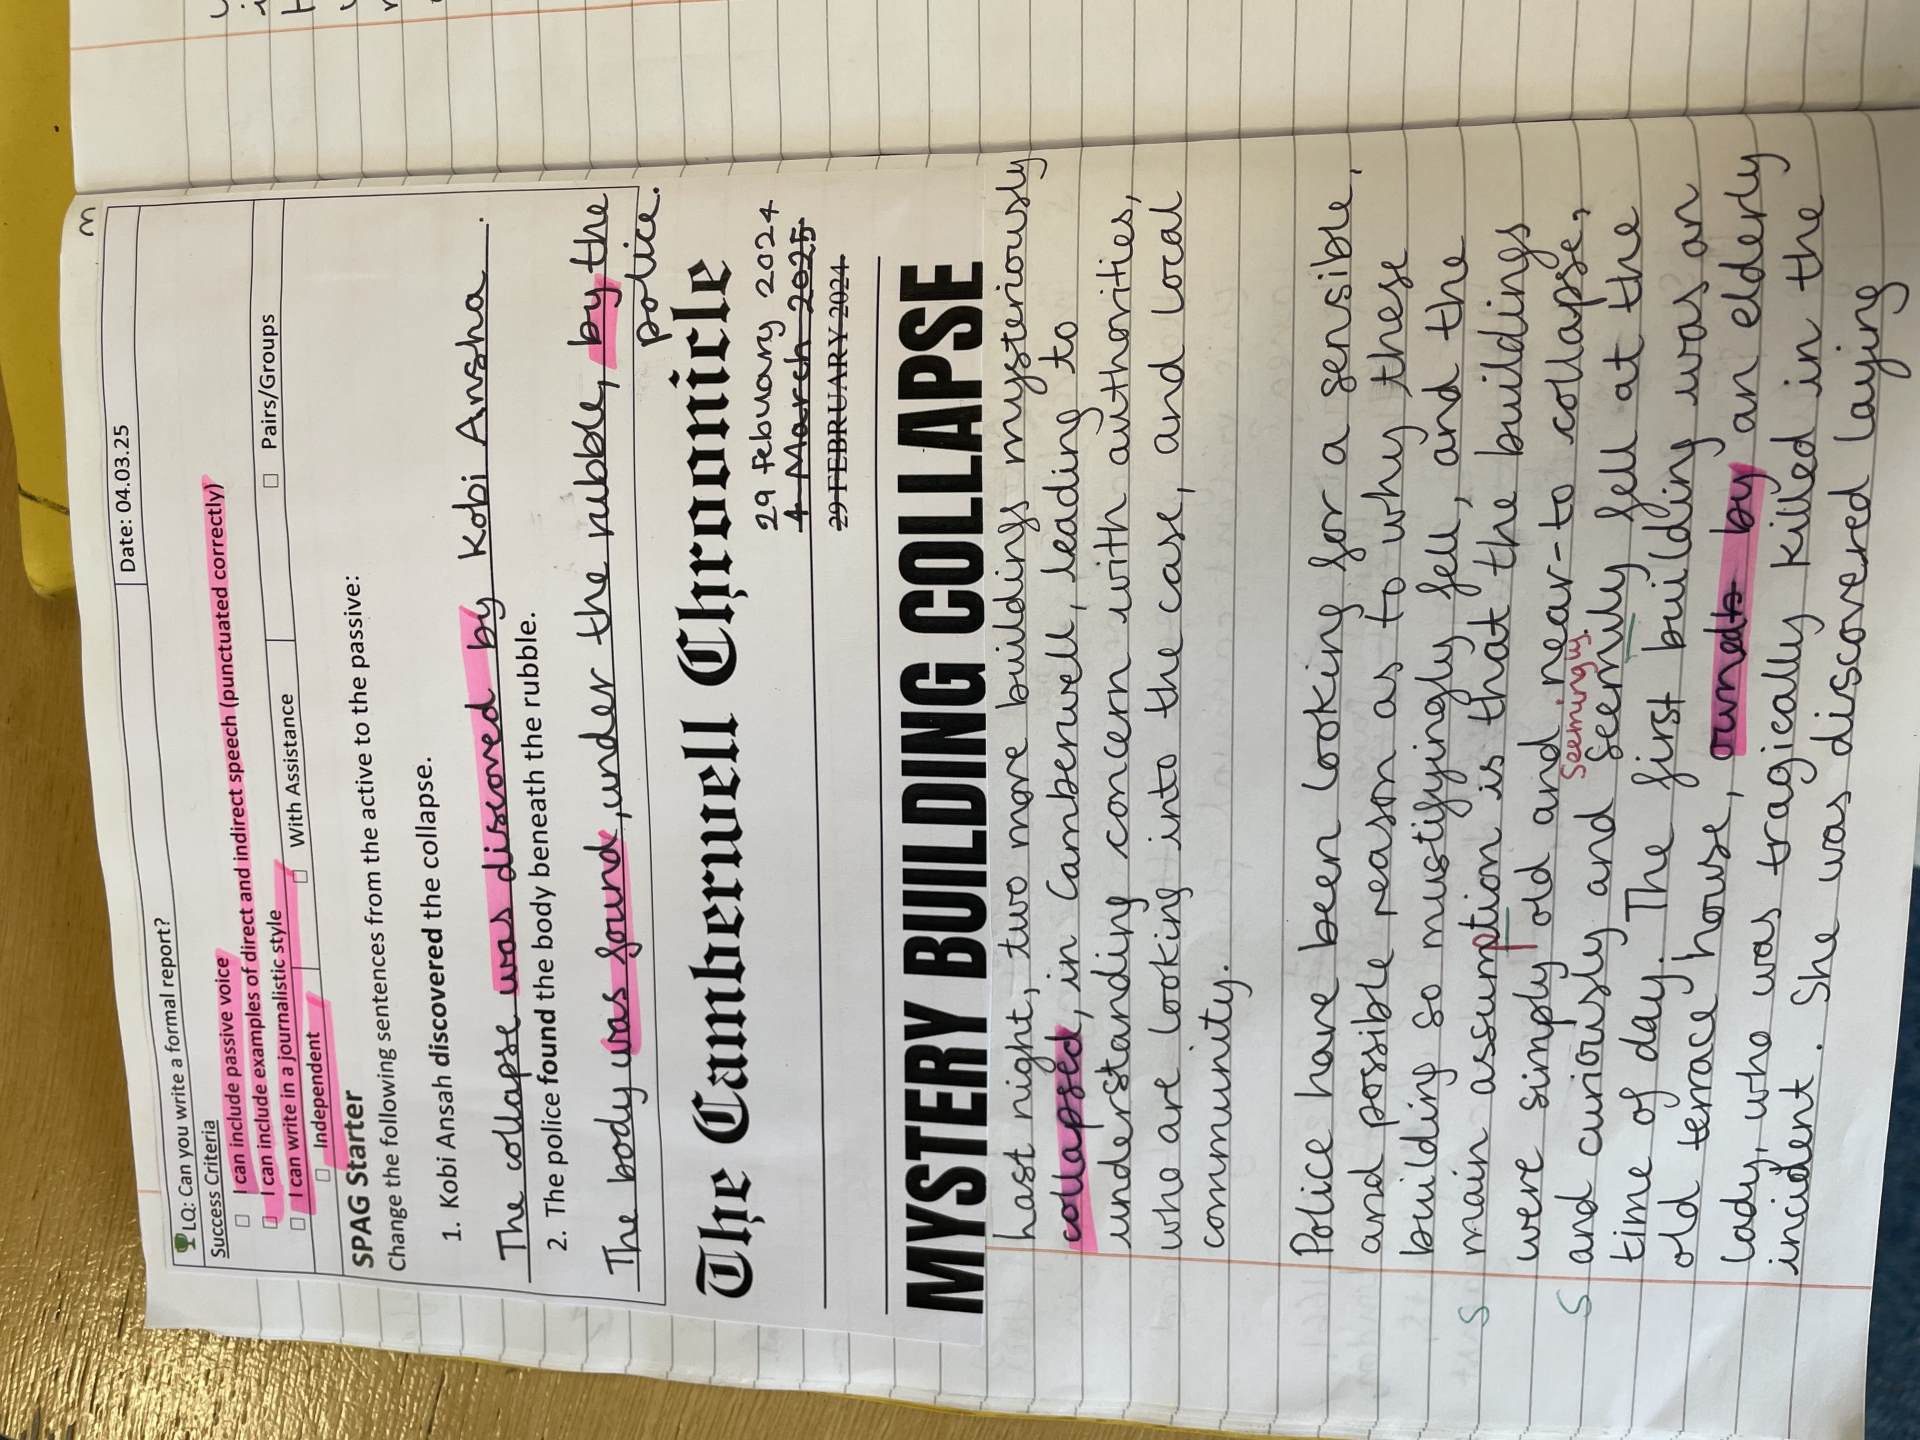 LQ: Can you write a formal report?
Date: 04.03.25
Success Criteria
I can include passive voice
I can include examples of direct and indirect speech (punctuated correctly)
I can write in a journalistic style
Independent
With Assistance
Pairs/Groups
SPAG Starter
Change the following sentences from the active to the passive:
1. Kobi Ansah discovered the collapse.
The collapse was discovered by Kobi Ansha.
2. The police found the body beneath the rubble.
The body was found, under the rubble, by the
police.
The Camberwell Chronicle
29 February 2024
4 March 2025
29 FEBRUARY 2024
MYSTERY BUILDING COLLAPSE
Last night, two more buildings mysteriously
collapsed, in Camberwell, leading to
understanding concern with authorities,
who are looking into the case, and local
community.
Police have been looking for a sensible,
and possible reason as to why these
building so mustifyingly fell, and the
S main assumption is that the buildings
were simply old and near-to collapse,
seemingly
S and curiously and seemily fell at the
time of day. The first building was an
old terrace house, owned by an elderly
lady, who was tragically killed in the
incident. She was discovered laying